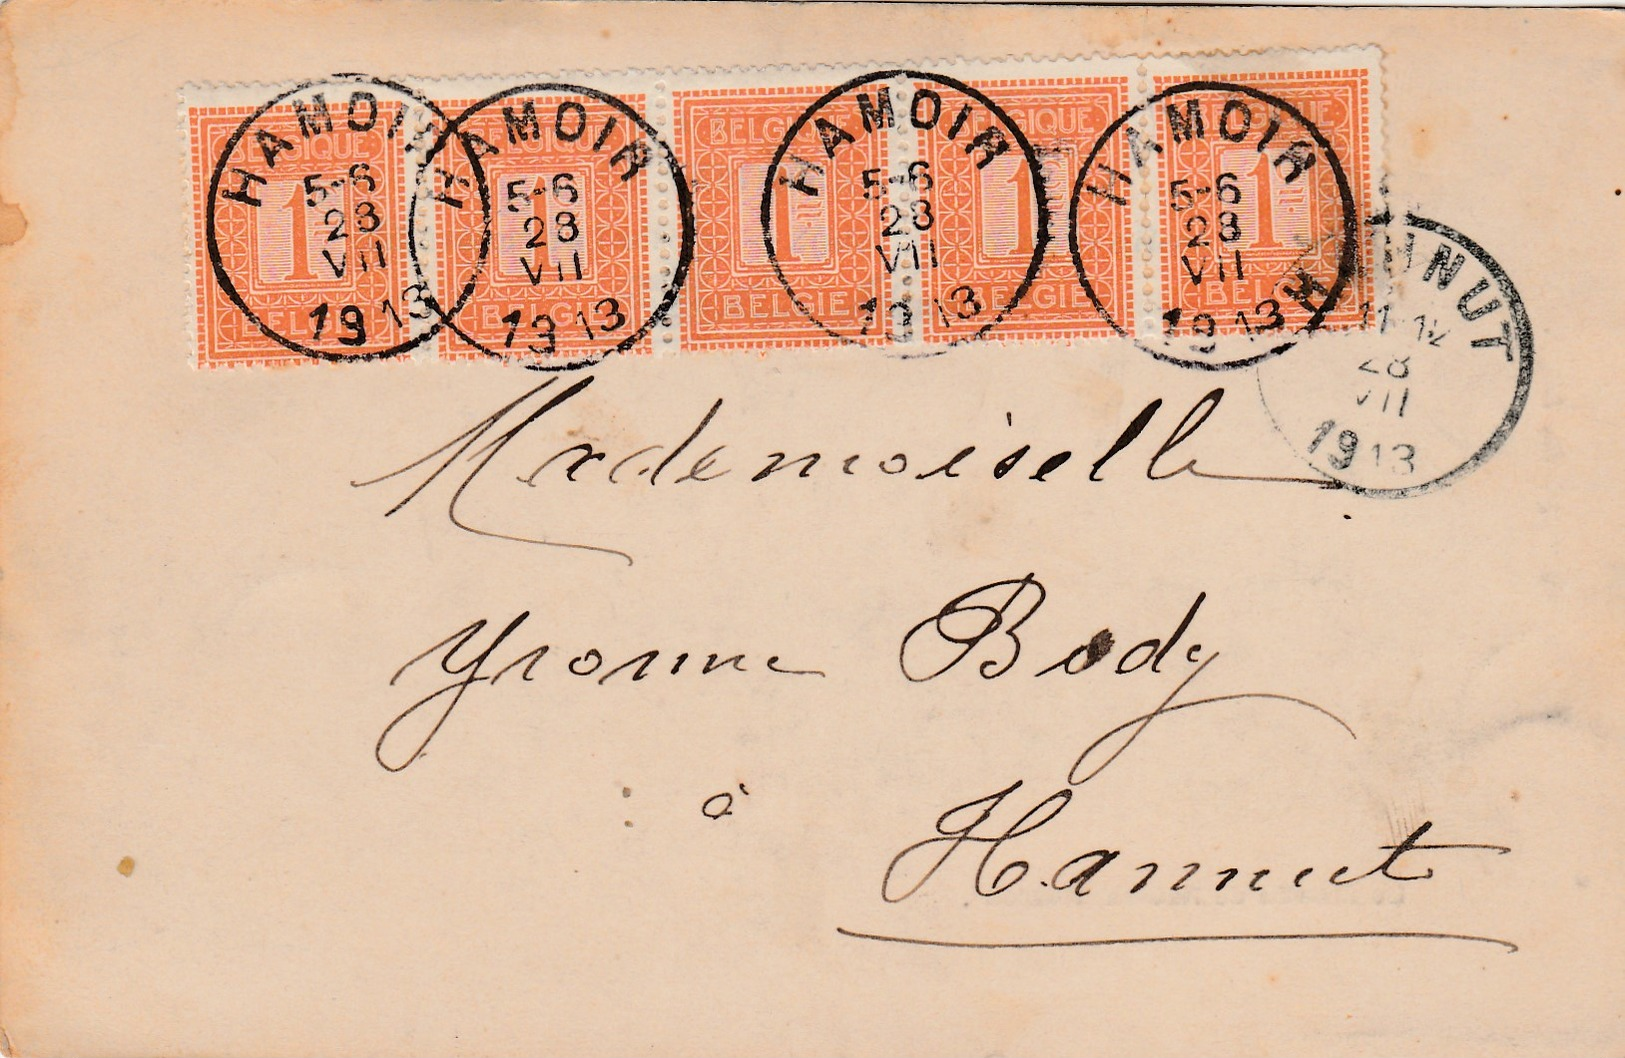 BELGIQUE BELGIQUE BELGIQUE BELGIQUE BELGIQUE
1 1 1 1 1
BELGIE BELGIE BELGIE BELGIE BELGIE
HAMOIR
5-6
28
VII
1913
HAMOIR
5-6
28
VII
1913
HAMOIR
5-6
28
VII
1913
HAMOIR
5-6
28
VII
1913
HANNUT
11-12
28
VII
1913
Mademoiselle
Yvonne Body
à
Hannut